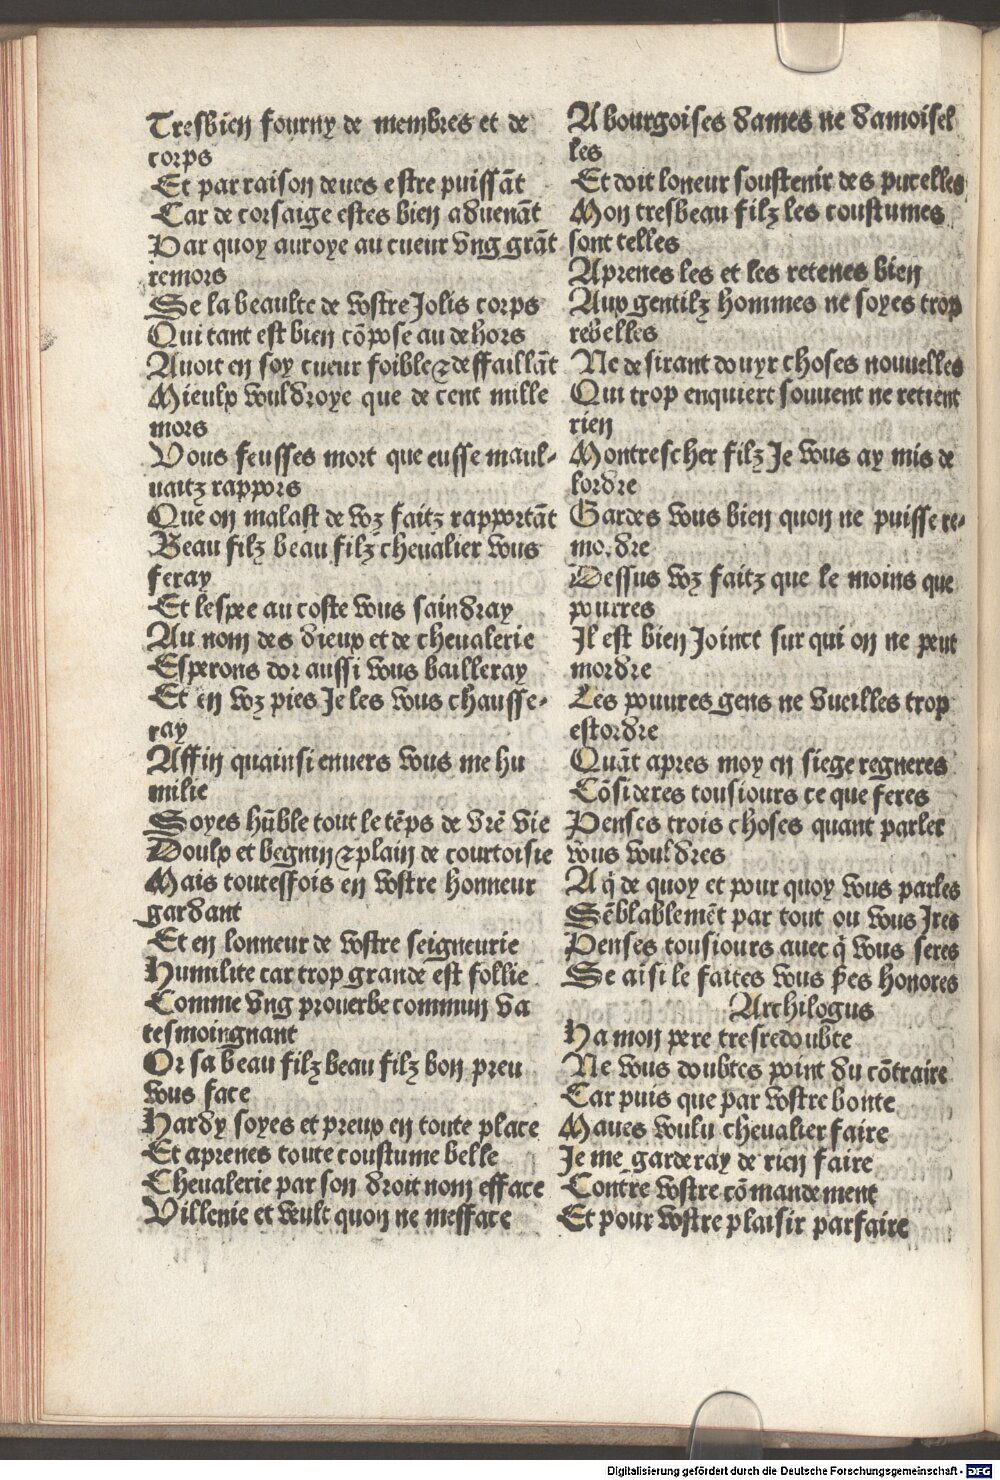 Tresbien fourny de membres et de
corps
Et par raison deues estre puissãt
Car de corsaige estes bien aduenãt
Par quoy auroye au cueur vng grãt
remors
Se la beaulte de vostre Jolis corps
Qui tant est bien cõpose au dehors
Auoit en soy cueur foible ⁊ deffaillãt
Mieulx vouldroye que de cent mille
mors
Vous feusses mort que eusse maul-
uaitz rappors
Que on malast de voz faitz rapportãt
Beau filz beau filz cheualier vous
feray
Et lespee au coste vous saindray
Au nom des dieux et de cheualerie
Esperons dor aussi vous bailleray
Et en voz pies Je les vous chausse-
ray
Affin quainsi enuers vous me hu
milie
Soyes hũble tout le tẽps de vrẽ vie
Doulx et begnin ⁊ plain de courtoisie
Mais toutesfois en vostre honneur
gardant
Et en lonneur de vostre seigneurie
Humilite car trop grande est follie
Comme vng prouerbe commun va
tesmoingnant
Or sa beau filz beau filz bon preu
vous face
Hardy soyes et preux en toute place
Et aprenes toute coustume belle
Cheualerie par son droit nom efface
Villenie et veult quon ne mefface
A bourgoises dames ne damoisel
les
Et doit loneur soustenir des pucelles
Mon tresbeau filz les coustumes
sont telles
Aprenes les et les retenes bien
Aux gentilz hommes ne soyes trop
rebelles
Ne desirant douyr choses nouuelles
Qui trop enquiert souuent ne retient
rien
Montrescher filz Je vous ay mis de
lordre
Gardes vous bien quon ne puisse re-
mordre
Dessus voz faitz que le moins que
pourres
Il est bien Joinct sur qui on ne peut
mordre
Les pouures gens ne vueilles trop
estordre
Quãt apres moy en siege regneres
Cõsideres tousiours ce que feres
Penses trois choses quant parler
vous vouldres
A q̃ de quoy et pour quoy vous parles
Sẽblablemẽt par tout ou vous Ires
Penses tousiours auec q̃ vous seres
Se aisi le faites vous s̃es honores
Archilogus
Ha mon pere tresredoubte
Ne vous doubtes point du cõtraire
Car puis que par vostre bonte
Maues voulu cheualier faire
Je me garderay de rien faire
Contre vostre cõmandement
Et pour vostre plaisir parfaire
Digitalisierung gefördert durch die Deutsche Forschungsgemeinschaft - DFG